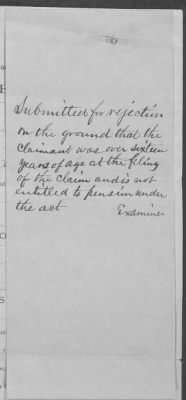 Submitted for rejection
on the ground that the
claimant was over sixteen
years of age at the filing
of the claim and is not
entitled to pension under
the act
Examiner